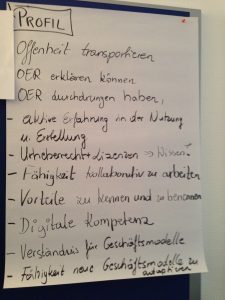 PROFIL
Offenheit transportieren
OER erklären können
OER durchdrungen haben,
- aktive Erfahrung in der Nutzung
u. Erstellung
- Urheberrecht + Lizenzen → Wissen
- Fähigkeit kollaborativ zu arbeiten
- Vorteile zu kennen und zu benennen
- Digitale Kompetenz
- Verständnis für Geschäftsmodelle
- Fähigkeit neue Geschäftsmodelle zu
adaptieren